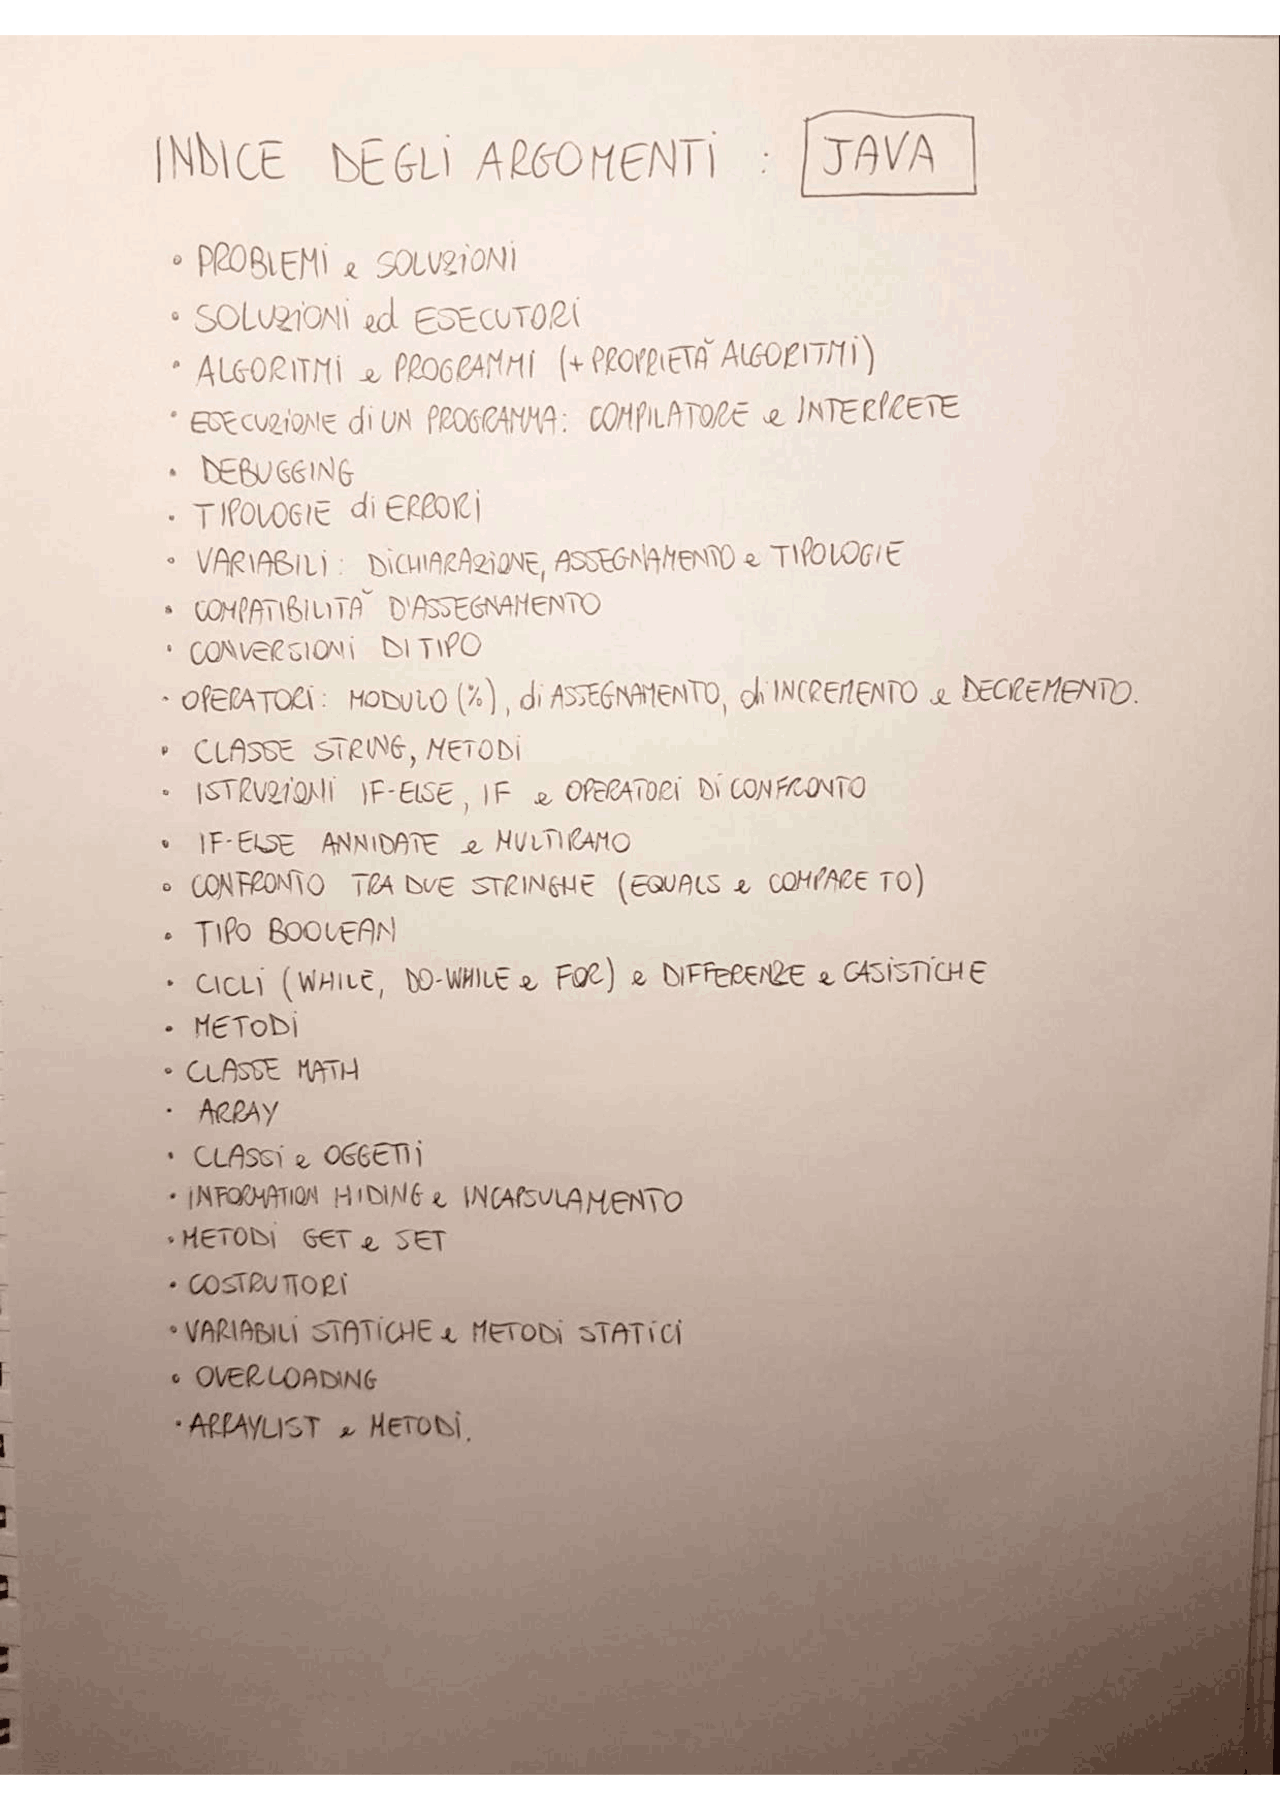 INDICE DEGLI ARGOMENTI : JAVA
• PROBLEMI e SOLUZIONI
• SOLUZIONI ed ESECUTORI
• ALGORITMI e PROGRAMMI (+ PROPRIETÀ ALGORITMI)
• ESECUZIONE di UN PROGRAMMA: COMPILATORE e INTERPRETE
• DEBUGGING
• TIPOLOGIE di ERRORI
• VARIABILI: DICHIARAZIONE, ASSEGNAMENTO e TIPOLOGIE
• COMPATIBILITÀ D'ASSEGNAMENTO
• CONVERSIONI DI TIPO
• OPERATORI: MODULO (%), di ASSEGNAMENTO, di INCREMENTO e DECREMENTO.
• CLASSE STRING, METODI
• ISTRUZIONI IF-ELSE, IF e OPERATORI DI CONFRONTO
• IF-ELSE ANNIDATE e MULTIRAMO
• CONFRONTO TRA DUE STRINGHE (EQUALS e COMPARE TO)
• TIPO BOOLEAN
• CICLI (WHILE, DO-WHILE e FOR) e DIFFERENZE e CASISTICHE
• METODI
• CLASSE MATH
• ARRAY
• CLASSI e OGGETTI
• INFORMATION HIDING e INCAPSULAMENTO
• METODI GET e SET
• COSTRUTTORI
• VARIABILI STATICHE e METODI STATICI
• OVERLOADING
• ARRAYLIST e METODI.